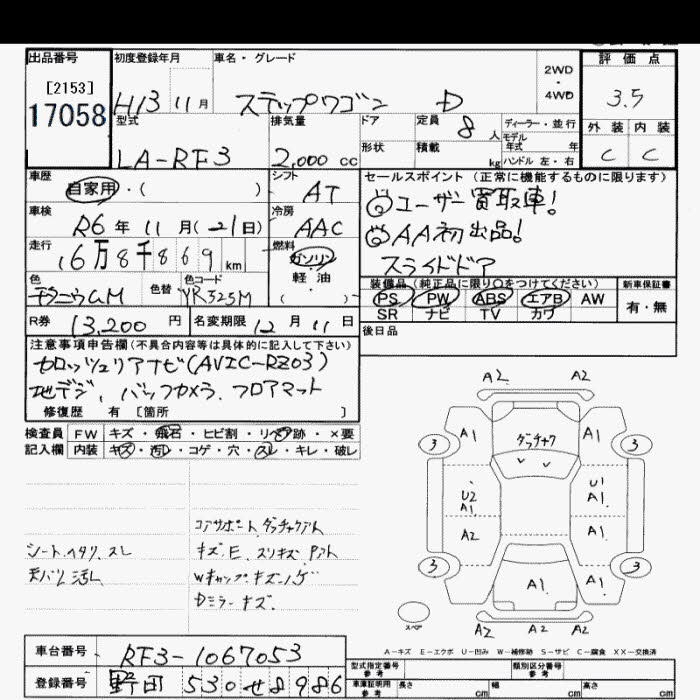 出品番号
[2153]
17058
初度登録年月
H13 11月
車名・グレード
ステップワゴン D
2WD
・
4WD
評価点
3.5
外装 内装
C C
型式
LA-RF3
排気量
2,000 cc
ドア
形状
定員 8 人
積載 kg
ディーラー・並行
モデル
年式 年
ハンドル 左・右
車歴
自家用・( )
シフト
AT
車検
R6年 11月(21日)
冷房
AAC
走行
16万8千869km
燃料
ガソリン
軽油
( )
色
チタニウムM
色替
色コード
YR525M
R券 13,200円
名変期限 12月11日
セールスポイント(正常に機能するものに限ります)
◎ユーザー買取車!
◎AA初出品!
スライドドア
装備品(純正品に限り○をつけてください)
PS PW ABS エアB AW
SR ナビ TV カワ
新車保証書
有・無
後日品
注意事項申告欄(不具合内容等は具体的に記入して下さい)
カロッツェリアナビ(AVIC-RZ03)
地デジ, バックカメラ, フロアマット
修復歴 有 [箇所 ]
検査員
記入欄
FW キズ・飛石・ヒビ割・リペア跡・×要
内装 キズ・汚レ・コゲ・穴・スレ・キレ・破レ
シートヘタリ. スレ
天バリ汚レ
コアサポート ダッチャクアト
キズ. E. スリキズ. Pアト
Wキャップ キズ・ハゲ
Dミラーキズ.
A2 A2
A1 ダッチャク A1
3 3
U2
A1
U1
A1
A2 A1
3 3
A1 A1
スペア
A2 A2 A2
A-キズ E-エクボ U-凹み W-補修跡 S-サビ C-腐食 XX-交換済
車台番号 RF3-1067053
登録番号 野田 530 せ 8986
型式指定番号
参考
類別区分番号
参考
車庫証明用
参考
長さ cm 幅 cm 高さ cm